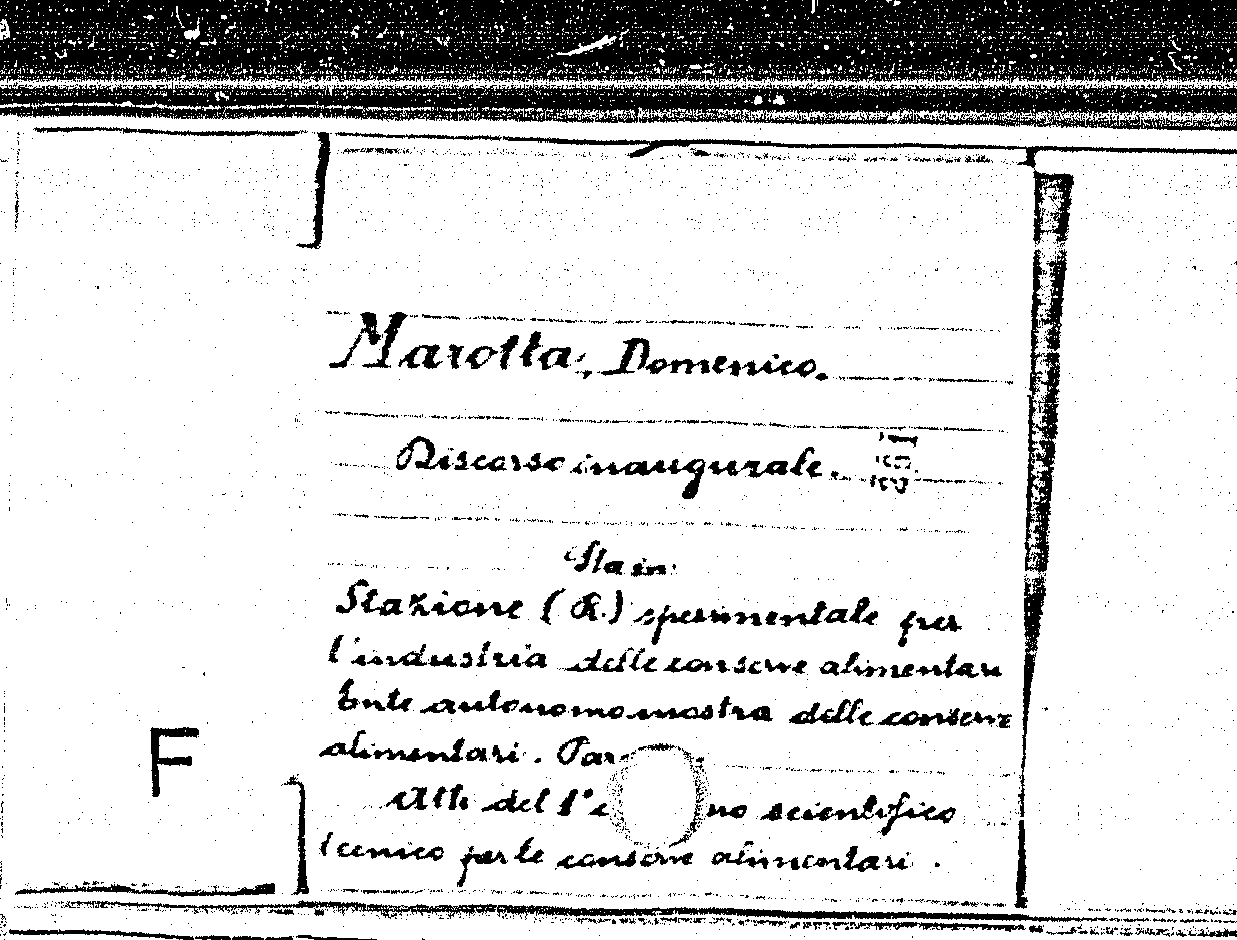 Marotta, Domenico.
Discorso inaugurale.
Sta in:
Stazione (R.) sperimentale per
l'industria delle conserve alimentari
Ente autonomo mostra delle conserve
alimentari.
Atti del 1° scientifico
tecnico per le conserve alimentari.
F